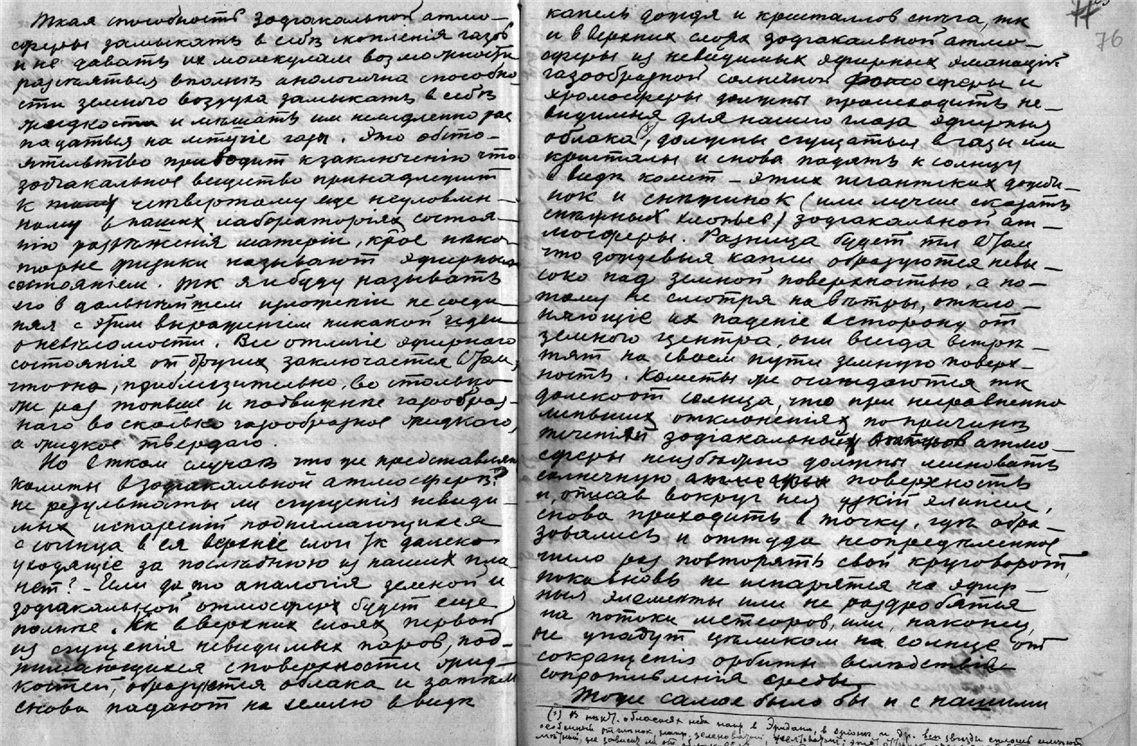 Ткая способность зодiакальной атмо-
сферы замыкать в себѣ скопленiя газов
и не давать их молекулам возможности
разсѣяться вполнѣ аналогична способно
сти земного воздуха замыкать в себѣ
жидкости и мѣшать им немедленно рас
падаться на летучiе газы. Это обсто-
ятельство приводит к заключенiю что
зодiакальное вещество принадлежит
к четвертому еще неуловлен-
ному в наших лабораторiях состоя-
нiю разрѣженiя матерiи, крое нѣко-
торые физики называют эфирным
состоянiем. Тк я и буду называть
его в дальнѣйшем изложенiи не соеди-
няя с этим выраженiем никакой идеи
о невѣсомости. Все отличiе эфирнаго
состоянiя от других заключается в том,
что оно, приблизительно, во столько
же раз тоньше и подвижнѣе газообраз-
наго во сколько газообразное жидкаго,
а жидкое твердаго.
Но в тком случаѣ что же представляют
кометы в зодiакальной атмосферѣ?
не результаты ли сгущенiя невиди-
мых испаренiй поднимающихся
с солнца в ея верхнiе слои тк далеко
уходящiе за послѣднюю из наших пла-
нет? - Если да то аналогiя земной и
зодiакальной атмосфер будет еще
полнѣе. Кк в верхних слоях первой
из сгущенiя невидимых паров, под-
нимающихся с поверхности жид-
костей, образуются облака и затѣм
снова падают на землю в видѣ
76
капель дождя и кристаллов снѣга, тк
и в верхних слоях зодiакальной атмо-
сферы из невидимых эфирных эманацiй
газообразной солнечной фотосферы и
хромосферы должны происходить не-
видимыя для нашего глаза эфирныя
облака, должны сгущаться в газы или
кристалы и снова падать к солнцу
в видѣ комет - этих гигантских дожди-
нок и снѣжинок (или лучше сказать
снѣжных хлопьев) зодiакальной ат-
мосферы. Разница будет тл в том
что дождевыя капли образуются невы-
соко над земной поверхностью, а по-
тому не смотря на вѣтры, откло-
няющiе их паденiе в сторону от
земного центра, они всегда встрѣ-
тят на своем пути земную поверх-
ность. Кометы же осаждаются тк
далеко от солнца, что при несравненно
меньших отклоненiях по причинѣ
теченiй зодiакальной атмо-
сферы неизбѣжно должны миновать
солнечную поверхность
и, описав вокруг нея узкiй элипсис,
снова приходить в точку, гдѣ обра-
зовались и оттуда неопредѣленное
число раз повторять свой круговорот,
пока вновь не испарятся на эфир-
ные элементы или не раздробятся
на потоки метеоров, или, наконец,
не упадут цѣликом на солнце от
сокращенiя орбиты вслѣдствiе
сопротивленiя среды.
Тоже самое было бы и с нашими
(1) В нѣкт. областях неба напр в Эридане, в и др. всѣ звѣзды